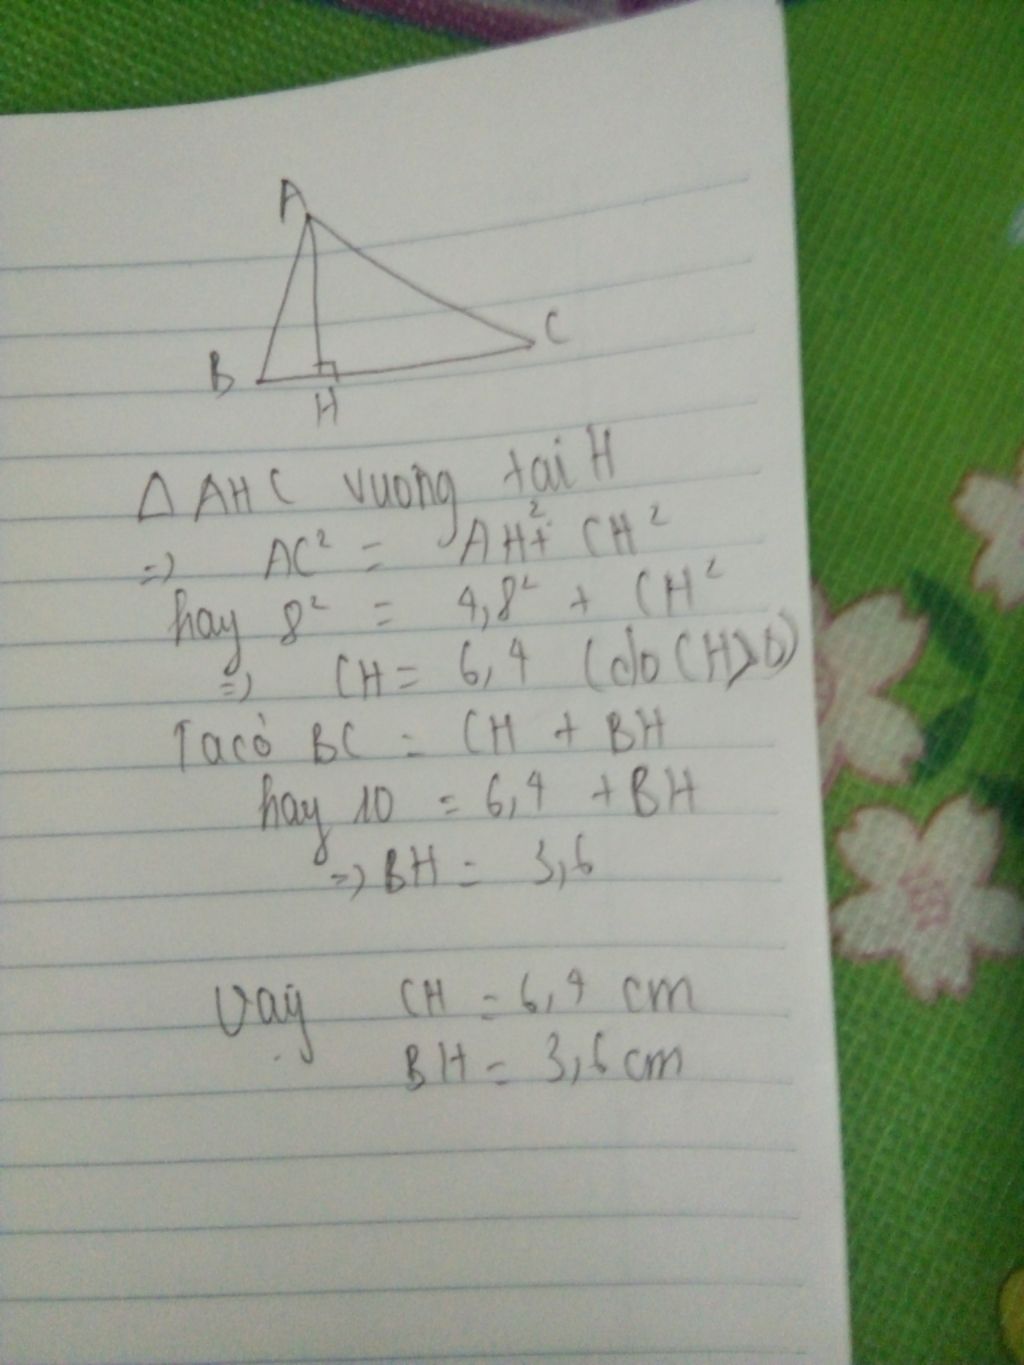 A
B
C
H
Δ AHC vuông tại H
=> AC² = AH² + CH²
hay 8² = 4,8² + CH²
=> CH = 6,4 (do CH>0)
Ta có BC = CH + BH
hay 10 = 6,4 + BH
=> BH = 3,6
Vậy CH = 6,4 cm
BH = 3,6 cm